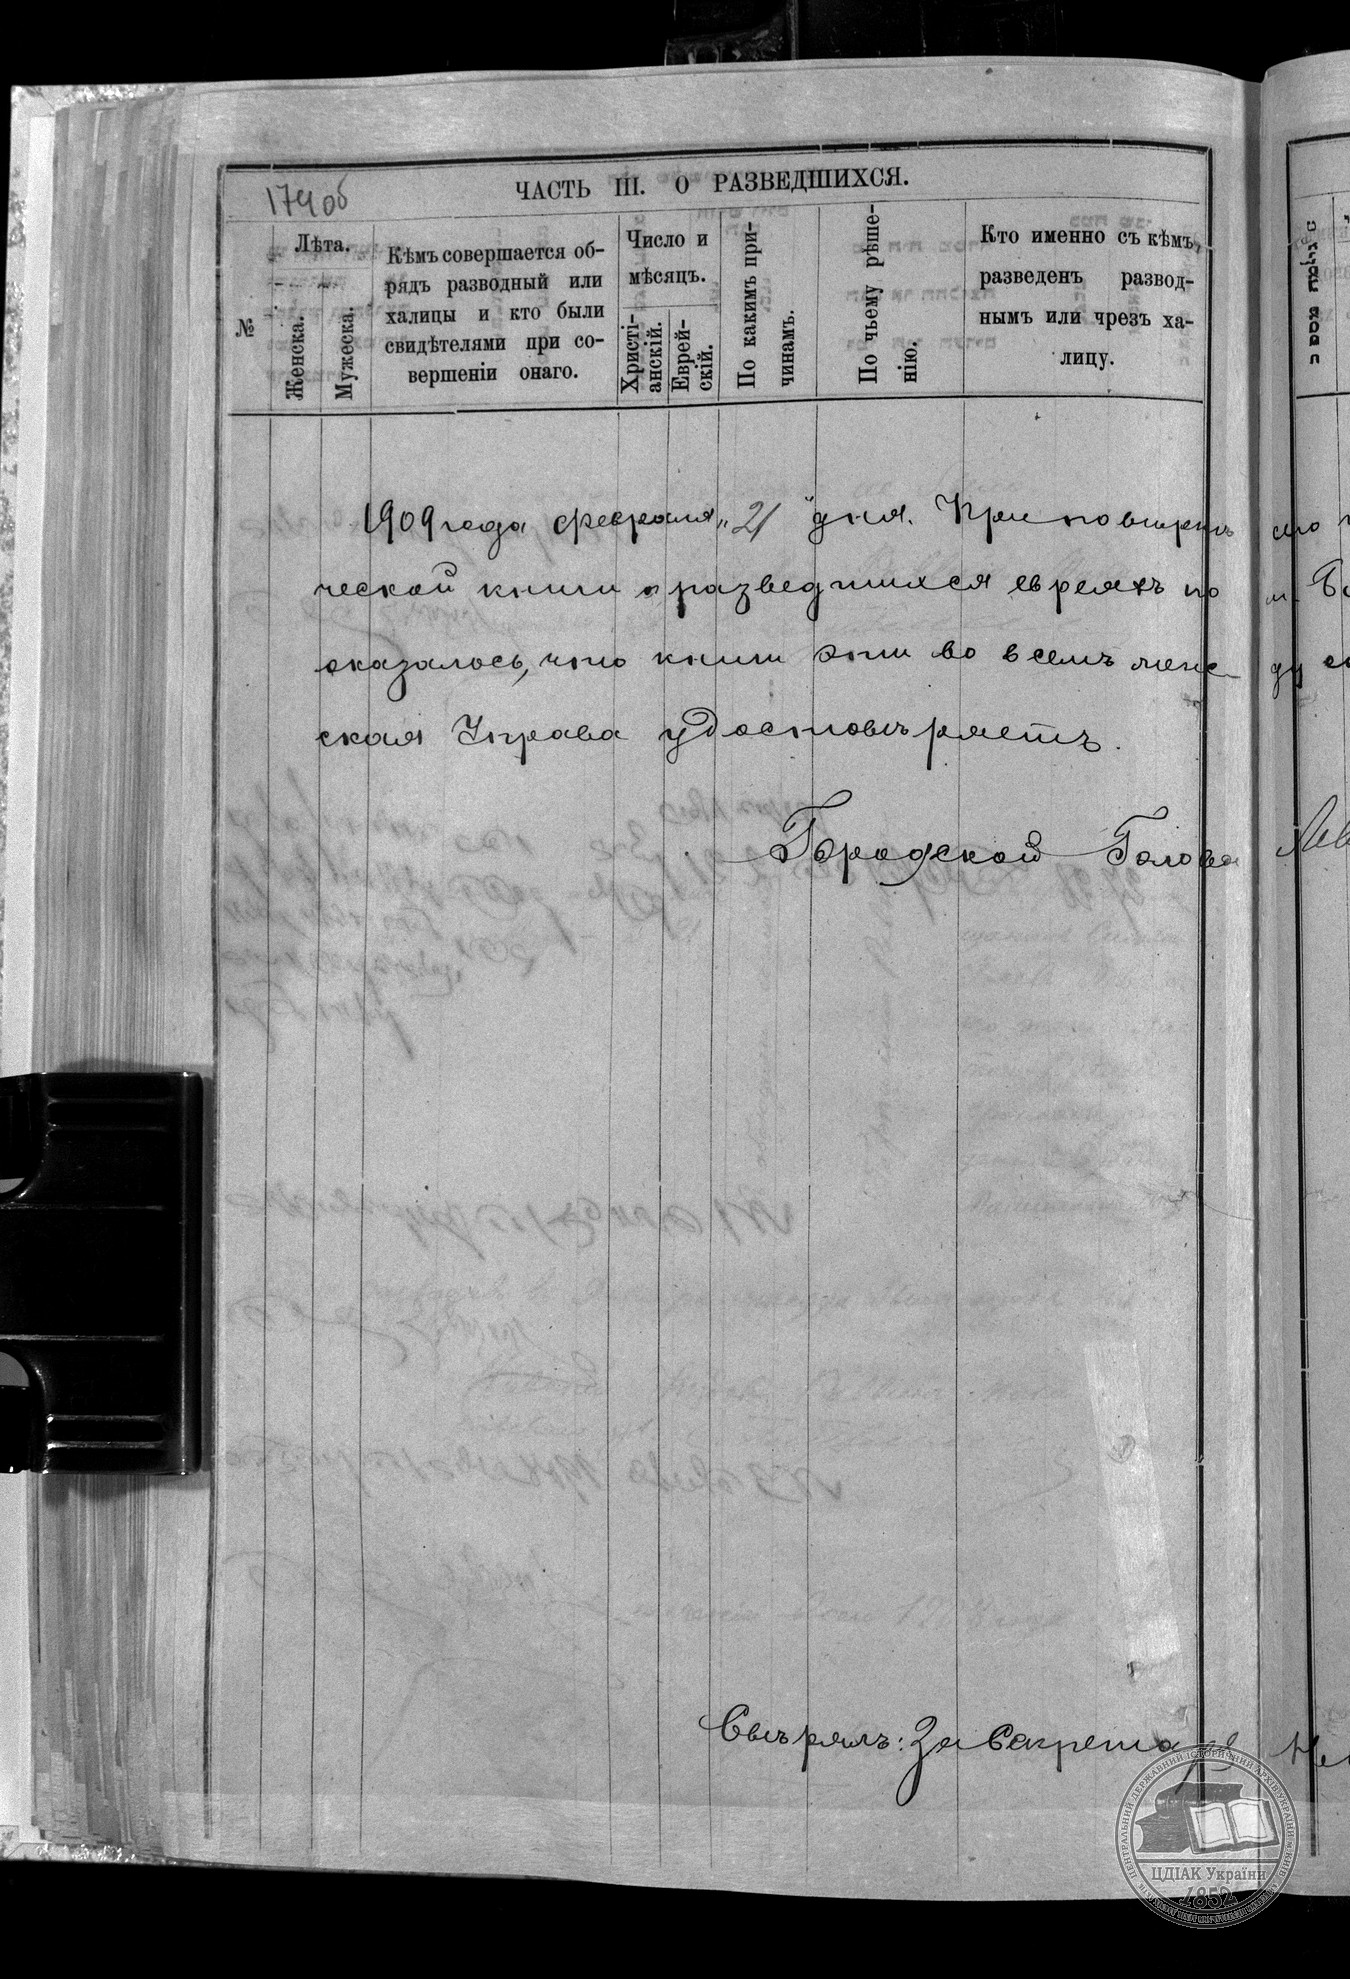 174 об
ЧАСТЬ III. О РАЗВЕДШИХСЯ.
№
Лѣта.
Женска.
Мужеска.
Кѣмъ совершается об-
рядъ разводный или
халицы и кто были
свидѣтелями при со-
вершеніи онаго.
Число и
мѣсяцъ.
Христі-
анскій.
Еврей-
скій.
По какимъ при-
чинамъ.
По чьему рѣше-
нію.
Кто именно съ кѣмъ,
разведенъ развод-
нымъ или чрезъ ха-
лицу.
1909 года февраля „21" дня. При повѣркѣ
ческой книги о разведшихся евреяхъ по
оказалось, что книги эти во всемъ
ская Управа удостовѣряетъ.
Городской Голова
Свѣрялъ: За Секретаря
ЦЕНТРАЛЬНИЙ ДЕРЖАВНИЙ ІСТОРИЧНИЙ АРХІВ УКРАЇНИ, м. КИЇВ
ЦДІАК України
1852